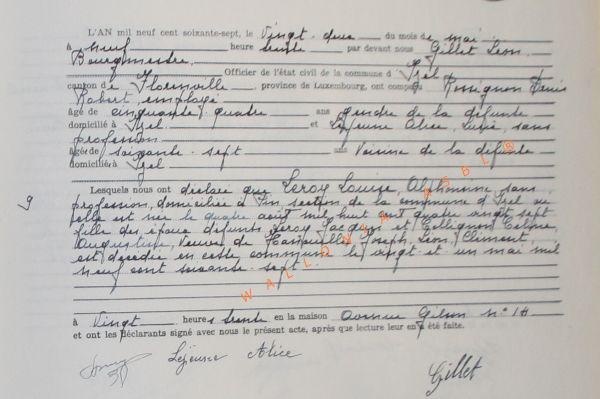 L'AN mil neuf cent soixante-sept, le Vingt-deux du mois de mai
à neuf heure trente par devant nous Gillet Léon,
Bourgmestre,
Officier de l'état civil de la commune d' Izel
canton de Florenville, province de Luxembourg, ont comparu Rossignon Denis
Robert, employé
âgé de cinquante quatre ans gendre de la défunte
domicilié à Izel et Lejeune Alice, Lucie, sans
profession
âgé de soixante-sept ans Voisine de la défunte
domicilié à Izel
Lesquels nous ont déclaré que Leroy Louise, Alphonsine, sans
profession, domiciliée à section de la commune d'Izel où
elle est née le quatre août mil huit cent quatre vingt sept
fille des époux défunts Leroy Jacques et Collignon
Augustine, veuve de Joseph, Léon, Clément,
est décédée en cette commune le vingt et un mai mil
neuf cent soixante-sept
9
à Vingt heures trente en la maison avenue Gilson n° 14
et ont les déclarants signé avec nous le présent acte, après que lecture leur en a été faite.
Lejeune Alice
Gillet
WALLONIA ASBL